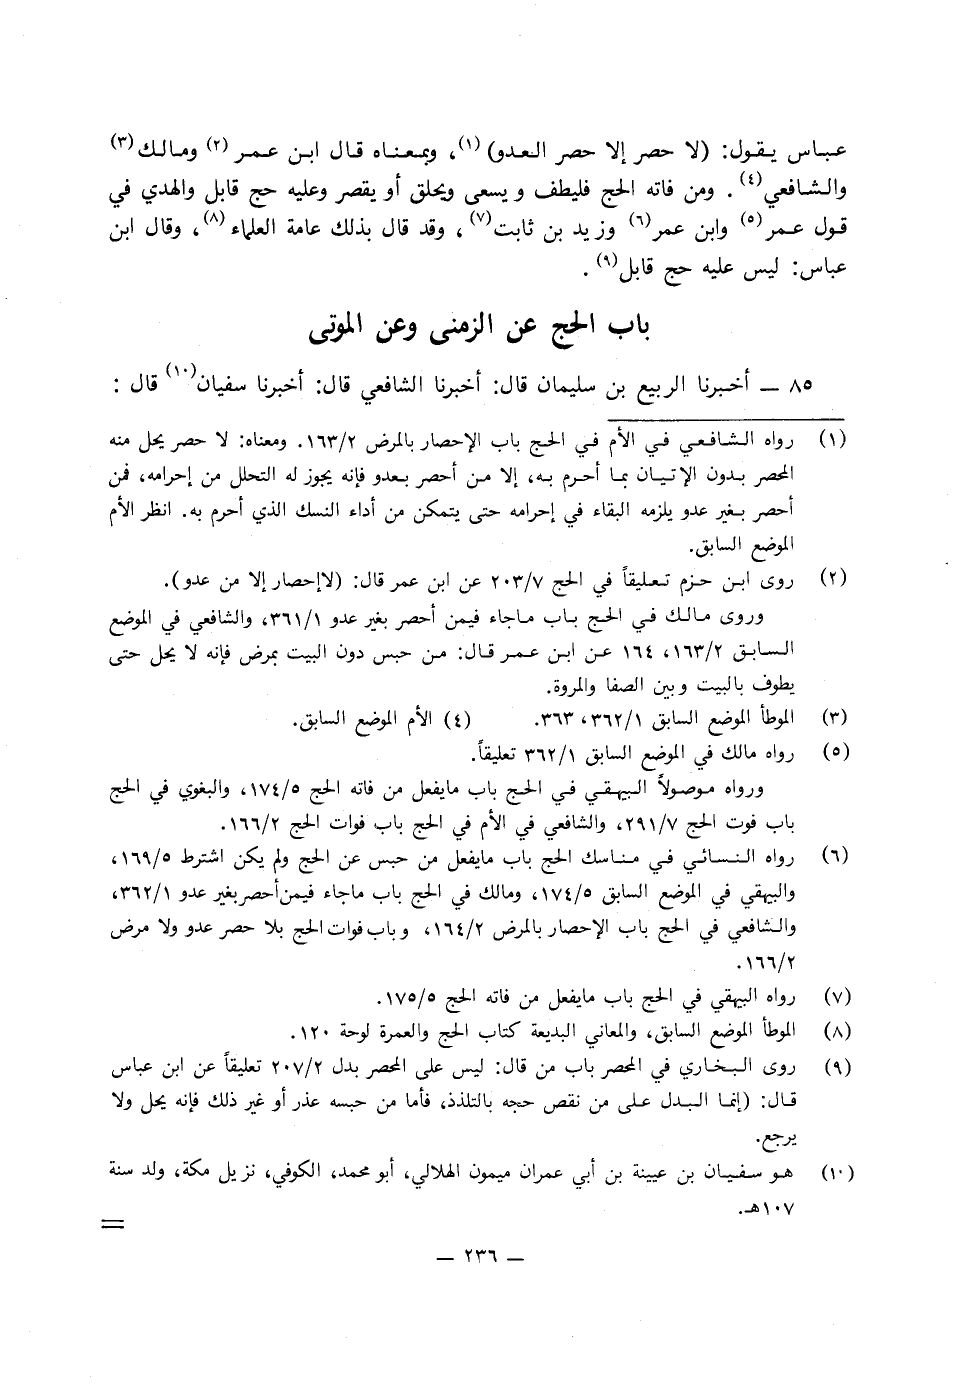 عباس يقول: (لا حصر إلا حصر العدو) (١)، وبمعناه قال ابن عمر (٢) ومالك (٣)
والشافعي (٤) . ومن فاته الحج فليطف ويسعى ويحلق أو يقصر وعليه حج قابل والهدي في
قول عمر (٥) وابن عمر (٦) وزيد بن ثابت (٧) ، وقد قال بذلك عامة العلماء (٨) ، وقال ابن
عباس: ليس عليه حج قابل (٩) .
باب الحج عن الزمنى وعن الموتى
٨٥ ـ أخبرنا الربيع بن سليمان قال: أخبرنا الشافعي قال: أخبرنا سفيان (١٠) قال :
(١) رواه الشافعي في الأم في الحج باب الإحصار بالمرض ١٦٣/٢. ومعناه: لا حصر يحل منه
المحصر بدون الإتيان بما أحرم به، إلا من أحصر بعدو فإنه يجوز له التحلل من إحرامه، فمن
أحصر بغير عدو يلزمه البقاء في إحرامه حتى يتمكن من أداء النسك الذي أحرم به. انظر الأم
الموضع السابق.
(٢) روى ابن حزم تعليقاً في الحج ٢٠٣/٧ عن ابن عمر قال: (لاإحصار إلا من عدو).
وروى مالك في الحج باب ماجاء فيمن أحصر بغير عدو ٣٦١/١، والشافعي في الموضع
السابق ١٦٣/٢، ١٦٤ عن ابن عمر قال: من حبس دون البيت بمرض فإنه لا يحل حتى
يطوف بالبيت وبين الصفا والمروة.
(٣) الموطأ الموضع السابق ٣٦٢/١، ٣٦٣. (٤) الأم الموضع السابق.
(٥) رواه مالك في الموضع السابق ٣٦٢/١ تعليقاً.
ورواه موصولاً البيهقي في الحج باب مايفعل من فاته الحج ١٧٤/٥، والبغوي في الحج
باب فوت الحج ٢٩١/٧، والشافعي في الأم في الحج باب فوات الحج ١٦٦/٢.
(٦) رواه النسائي في مناسك الحج باب مايفعل من حبس عن الحج ولم يكن اشترط ١٦٩/٥،
والبيهقي في الموضع السابق ١٧٤/٥، ومالك في الحج باب ماجاء فيمن أحصر بغير عدو ٣٦٢/١،
والشافعي في الحج باب الإحصار بالمرض ١٦٤/٢، وباب فوات الحج بلا حصر عدو ولا مرض
١٦٦/٢.
(٧) رواه البيهقي في الحج باب مايفعل من فاته الحج ١٧٥/٥.
(٨) الموطأ الموضع السابق، والمعاني البديعة كتاب الحج والعمرة لوحة ١٢٠.
(٩) روى البخاري في المحصر باب من قال: ليس على المحصر بدل ٢٠٧/٢ تعليقاً عن ابن عباس
قال: (إنما البدل على من نقص حجه بالتلذذ، فأما من حبسه عذر أو غير ذلك فإنه يحل ولا
يرجع.
(١٠) هو سفيان بن عيينة بن أبي عمران ميمون الهلالي، أبو محمد، الكوفي، نزيل مكة، ولد سنة
١٠٧هـ.
=
ـ ٢٣٦ ـ